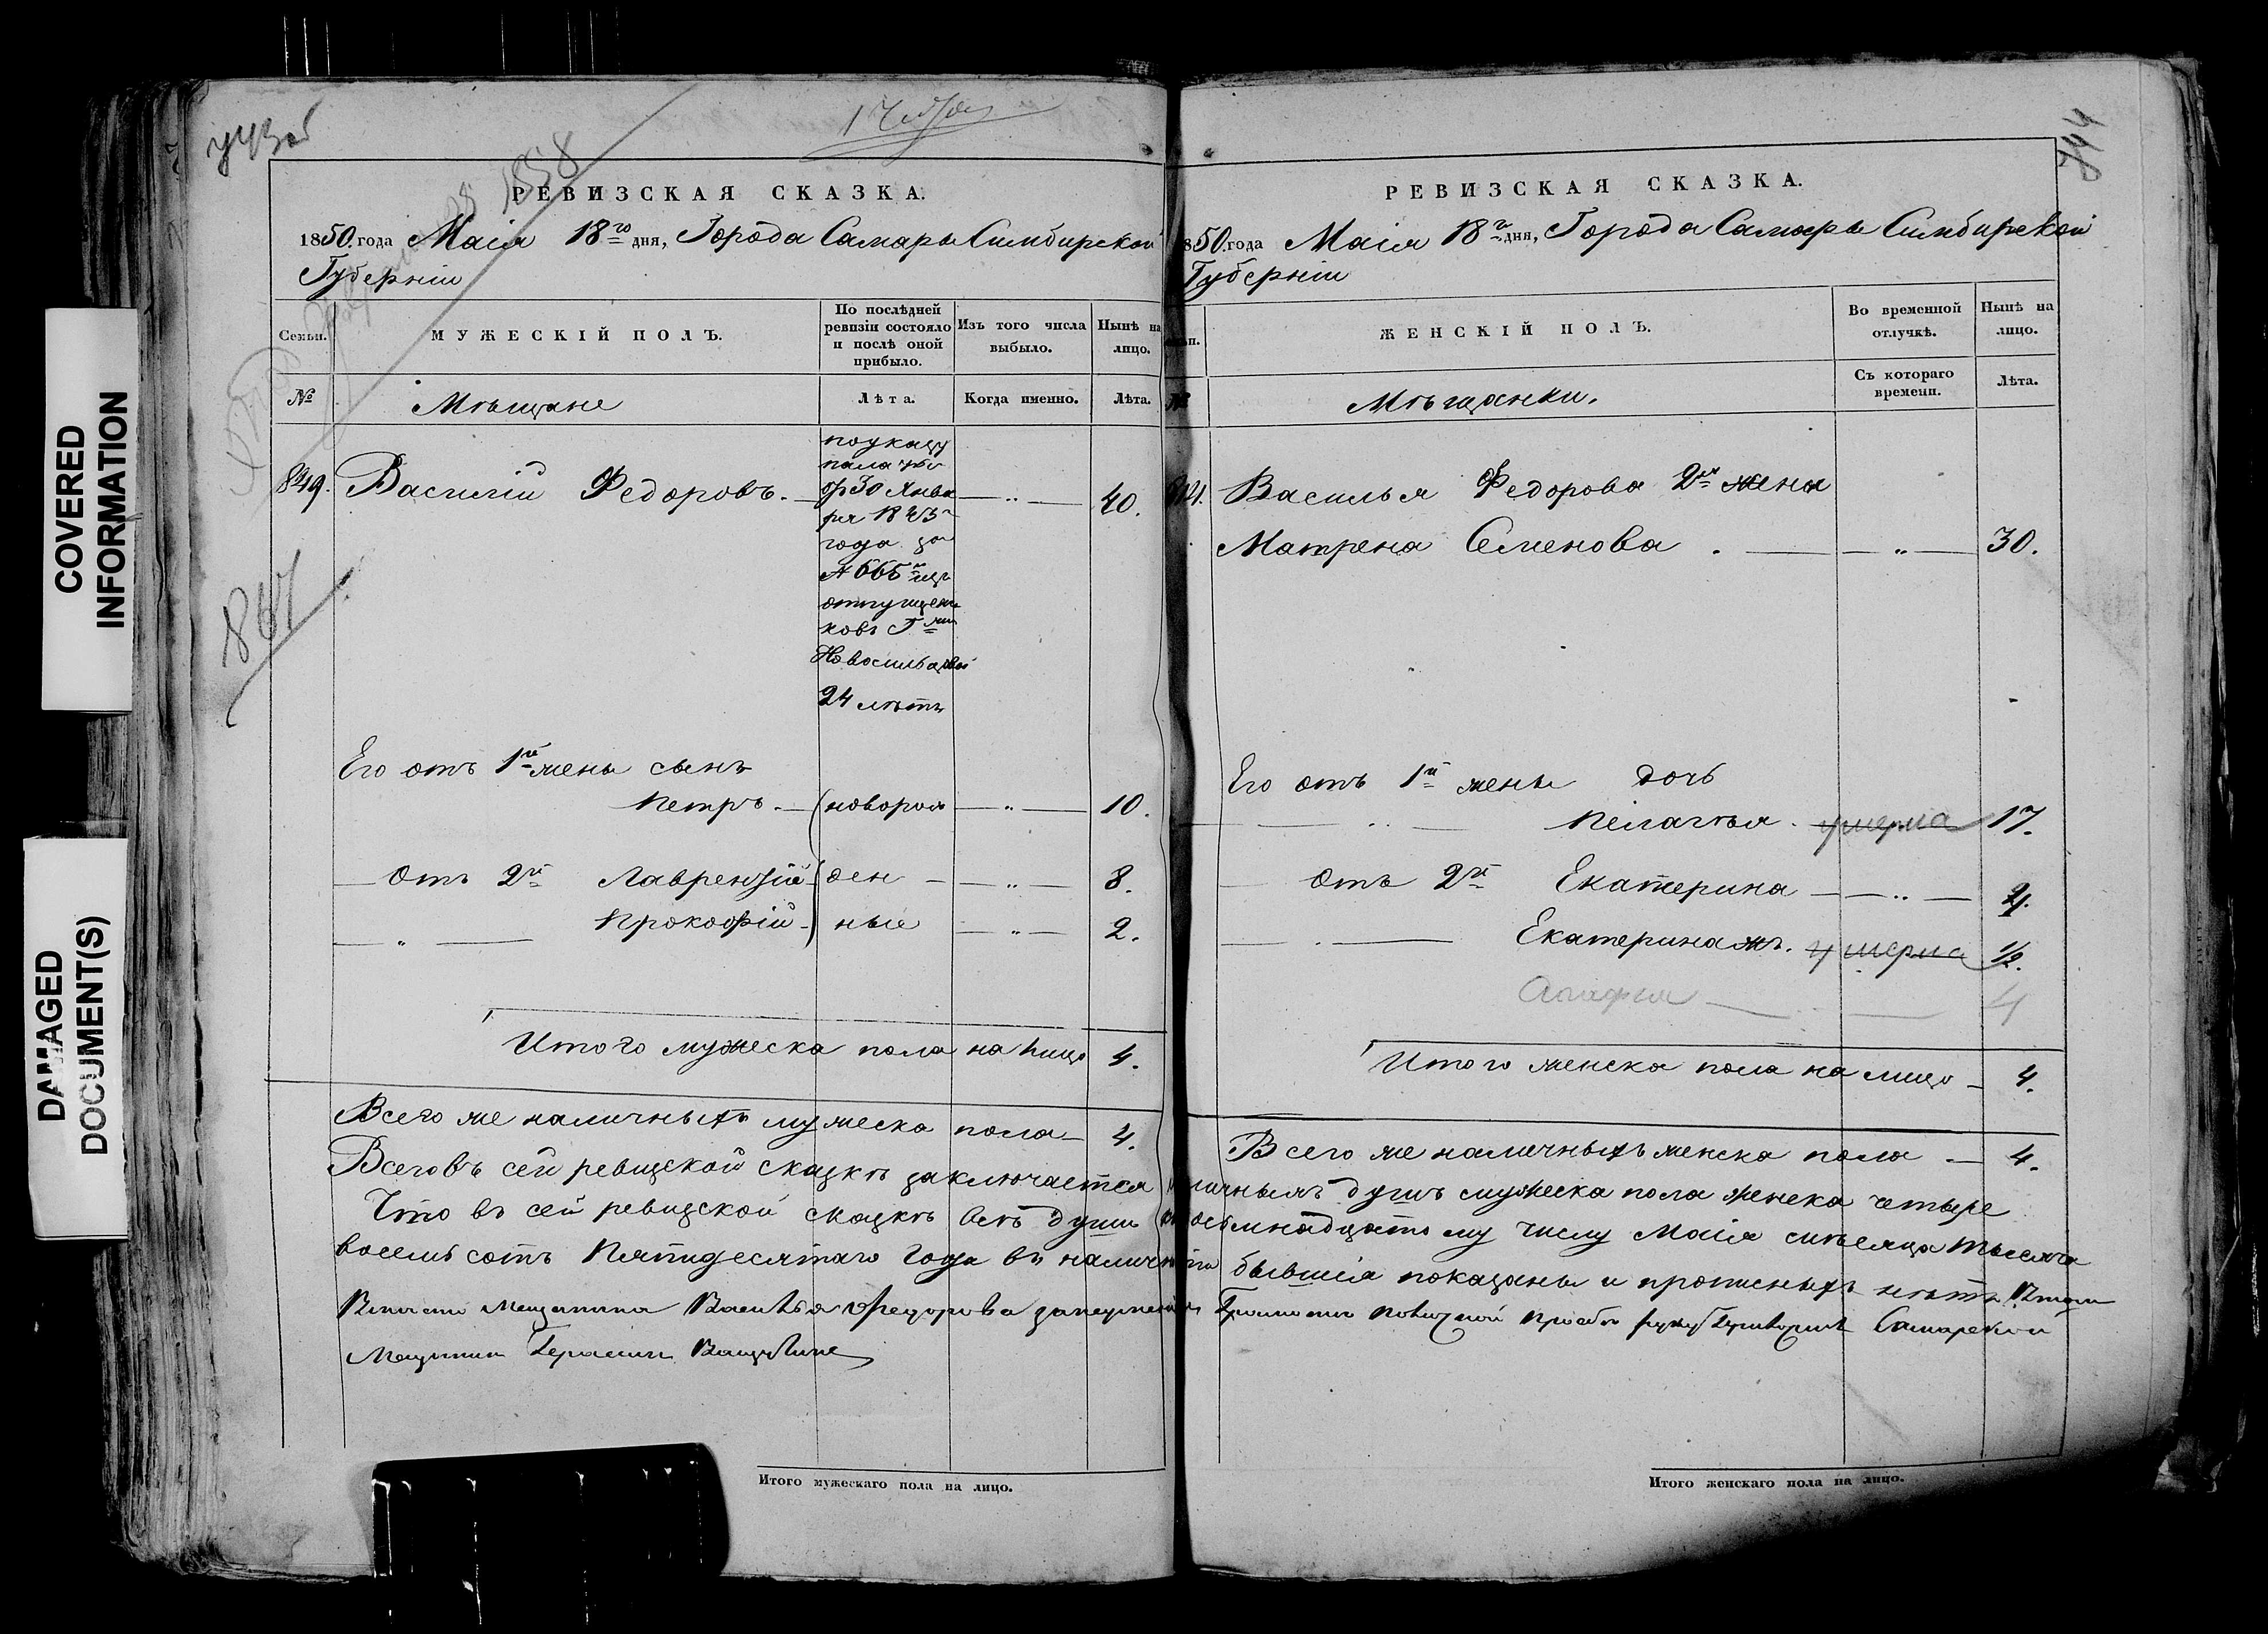 COVERED
INFORMATION
DAMAGED
DOCUMENT(S)
1858
744
РЕВИЗСКАЯ СКАЗКА.
1850 года Маія 18го дня, Города Самары Симбирской
Губерніи
Семьи.
МУЖЕСКІЙ ПОЛЪ.
По послѣдней
ревизіи состояло
и послѣ оной
прибыло.
Изъ того числа
выбыло.
Нынѣ на
лицо.
№
Мѣщане
Лѣта.
Когда именно.
Лѣта.
849. Василій Федоровъ. — " — 40.
по указу
палаты
от 30 Янва
ря 1843
года за
№ 665 изъ
отпущени
ковъ Гжи
Новосильцовой
24 лѣтъ
Его отъ 1й жены сынъ
Петръ. — новорож — " — 10.
— Отъ 2й Лаврентій — ден — " — 8.
— " — Прокофій — ные — " — 2.
Итого мужеска пола на лицо 4.
Всего же наличныхъ мужеска пола — 4.
РЕВИЗСКАЯ СКАЗКА.
1850 года Маія 18го дня, Города Самары Симбирской
Губерніи
ЖЕНСКІЙ ПОЛЪ.
Во временной
отлучкѣ.
Нынѣ на
лицо.
№
Мѣщанки.
Съ котораго
времени.
Лѣта.
Василья Федорова 2я жена
Матрена Семенова. — " — 30.
Его отъ 1й жены дочь
Пелагѣя. умерла 17.
— Отъ 2й Екатерина — " —
Екатерина ж. умерла 1/2.
Агафья — 4
Итого женска пола на лицо — 4.
Всего же наличныхъ женска пола — 4.
Всего въ сей ревизской сказкѣ заключается наличныхъ душъ мужеска пола женска четыре
Что въ сей ревизской сказкѣ всѣ души по осьмнадцатому числу Маія мѣсяца тысяча
восемь сотъ Пятидесятаго года въ наличности бывшія показаны и прописныхъ нѣтъ
мещанина Василья Федорова Самарской
Мещанин Герасим
Итого мужескаго пола на лицо.
Итого женскаго пола на лицо.